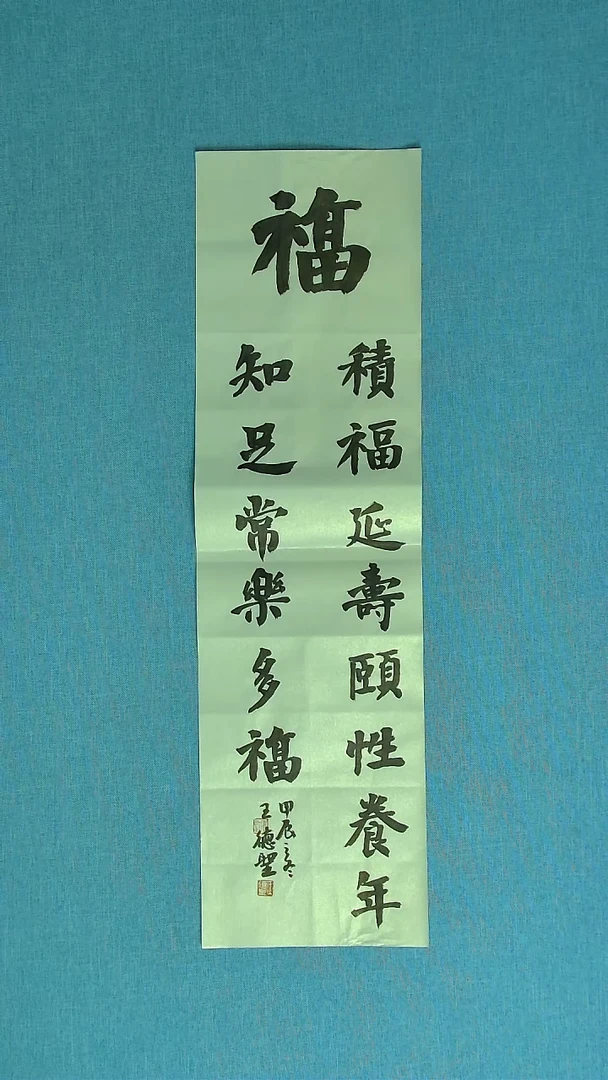 福
積福延壽頤性養年
知足常樂多福
甲辰之冬
王德聖